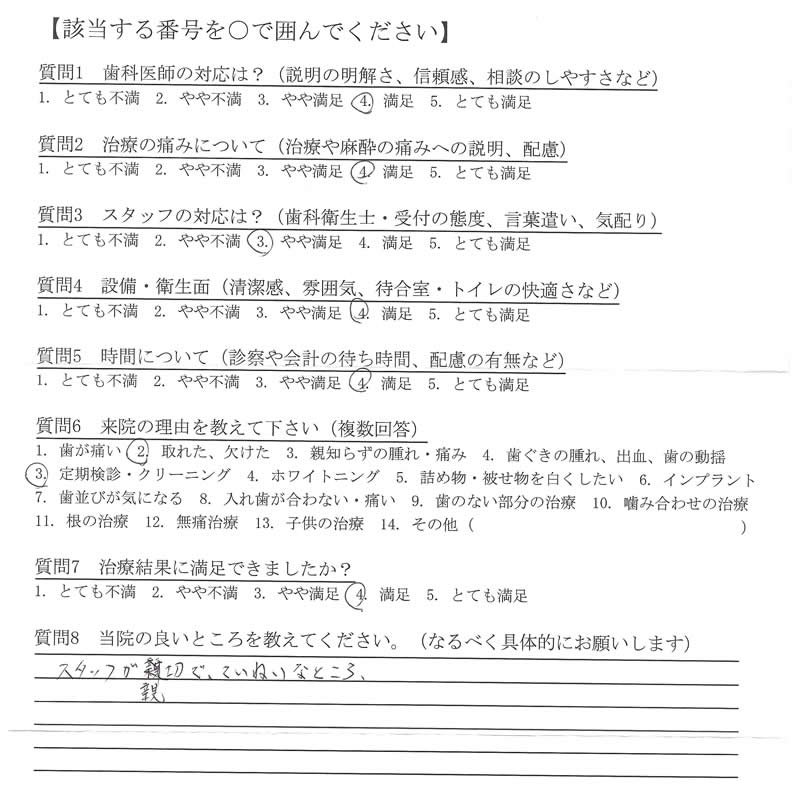 【該当する番号を○で囲んでください】
質問1 歯科医師の対応は？（説明の明解さ、信頼感、相談のしやすさなど）
1. とても不満 2. やや不満 3. やや満足 4. 満足 5. とても満足
質問2 治療の痛みについて（治療や麻酔の痛みへの説明、配慮）
1. とても不満 2. やや不満 3. やや満足 4. 満足 5. とても満足
質問3 スタッフの対応は？（歯科衛生士・受付の態度、言葉遣い、気配り）
1. とても不満 2. やや不満 3. やや満足 4. 満足 5. とても満足
質問4 設備・衛生面（清潔感、雰囲気、待合室・トイレの快適さなど）
1. とても不満 2. やや不満 3. やや満足 4. 満足 5. とても満足
質問5 時間について（診察や会計の待ち時間、配慮の有無など）
1. とても不満 2. やや不満 3. やや満足 4. 満足 5. とても満足
質問6 来院の理由を教えて下さい（複数回答）
1. 歯が痛い 2. 取れた、欠けた 3. 親知らずの腫れ・痛み 4. 歯ぐきの腫れ、出血、歯の動揺
3. 定期検診・クリーニング 4. ホワイトニング 5. 詰め物・被せ物を白くしたい 6. インプラント
7. 歯並びが気になる 8. 入れ歯が合わない・痛い 9. 歯のない部分の治療 10. 噛み合わせの治療
11. 根の治療 12. 無痛治療 13. 子供の治療 14. その他（ ）
質問7 治療結果に満足できましたか？
1. とても不満 2. やや不満 3. やや満足 4. 満足 5. とても満足
質問8 当院の良いところを教えてください。（なるべく具体的にお願いします）
スタッフが 切で、ていねいなところ、
親